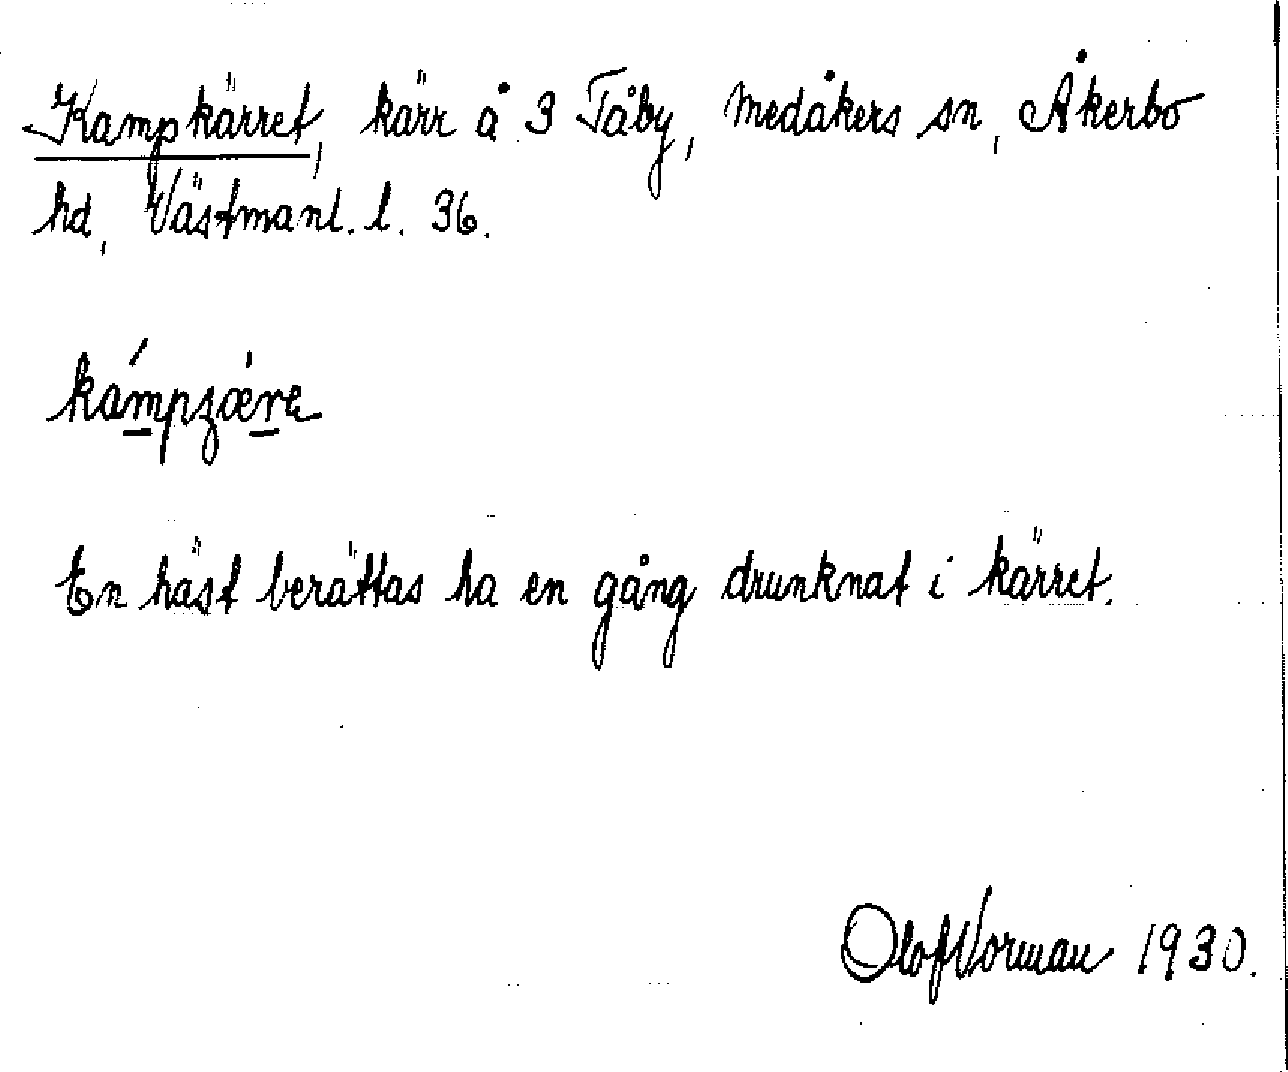 Kampkärret, kärr å 3 Tåby, Medåkers sn, Åkerbo
hd, Västmanl. l. 36.
kámpʒǽre
En häst berättas ha en gång drunknat i kärret.
Olof Norman 1930.